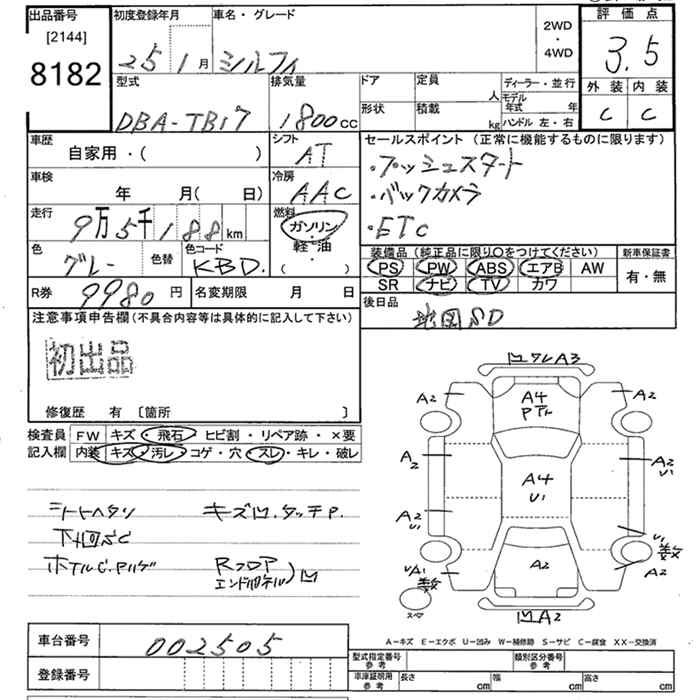 出品番号
[2144]
8182
初度登録年月
25 1月
車名・グレード
シルフィ
2WD
・
4WD
評価点
3.5
外装 内装
C C
型式
DBA-TB17
排気量
1800cc
ドア
形状
定員
人
積載
kg
ディーラー・並行
モデル年式 年
ハンドル 左・右
車歴
自家用・( )
シフト
AT
車検
年 月( 日)
冷房
AAC
走行
9万5千188km
燃料
ガソリン
・
軽・油
・
( )
色
グレー
色替
色コード
KBD.
R券
9980円
名変期限 月 日
セールスポイント(正常に機能するものに限ります)
・プッシュスタート
・バックカメラ
・ETC
装備品(純正品に限り○をつけてください)
PS PW ABS エアB AW
SR ナビ TV カワ
新車保証書
有・無
後日品
地図SD
注意事項申告欄(不具合内容等は具体的に記入して下さい)
初出品
修復歴 有 [箇所 ]
検査員
記入欄
FW キズ・飛石・ヒビ割・リペア跡・×要
内装 キズ・汚レ・コゲ・穴・スレ・キレ・破レ
シートヘタリ キズ凹.タッチP.
下回SC
ホイルC.
Rフロア
凹
A3
A2 A4 A2
A2 A4 U1 A2 U1
A2 U1 U1
UA1 数 A2 数 A2
スペア
凹A2
A−キズ E−エクボ U−凹み W−補修跡 S−サビ C−腐食 XX−交換済
車台番号
002505
登録番号
型式指定番号
参考
類別区分番号
参考
車庫証明用
参考
長さ cm 幅 cm 高さ cm